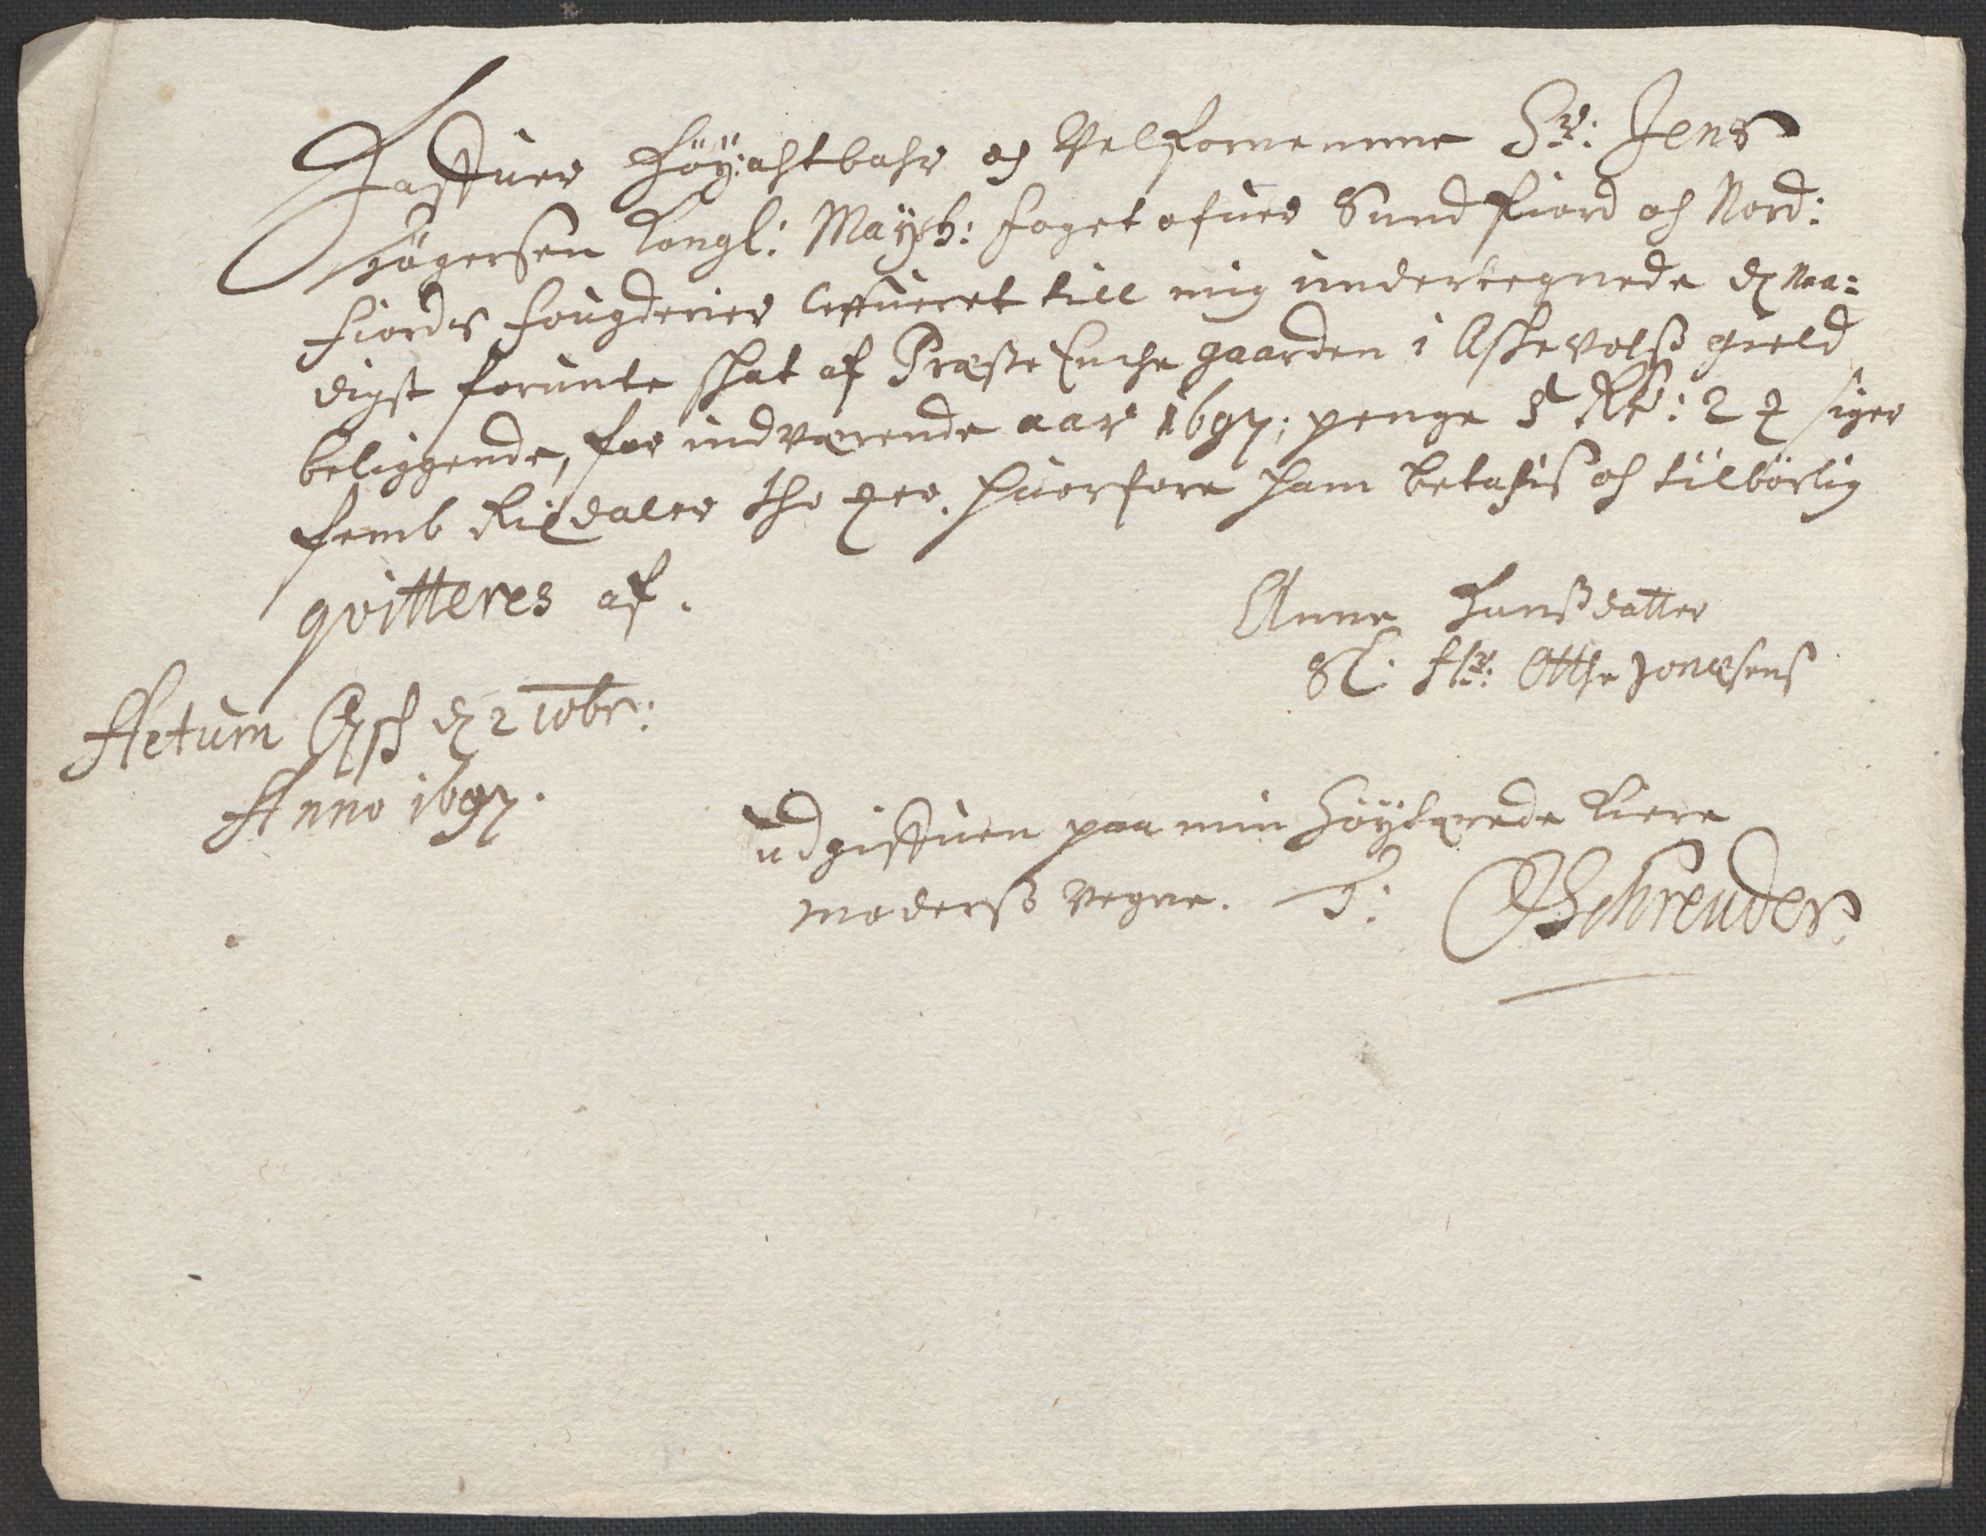 Haffuer Höy: ahtbahr og Velfornemme Sr: Jens
Högersen Kongl: Mayst: Foget ofuer Sund Fiord och Nord:
Fiords Fougderier leffueret till mig underteegnede d naa=
digst forunte skat af Præste Enche gaarden i Askevolß gield
beliggende, for indværende aar 1697; penge 5 Rdr: 2 siger
femb Rixdaler tho. Huorfore ham betahis och tilbörlig
qvitteres af.
Anne Hanßdatter
Sl. Hr: Otthe Jonæsens
Actum d 2 10br:
Anno 1697.
udgiffuen paa min Höytærede kiere
moderß vegne. JSchreuder.